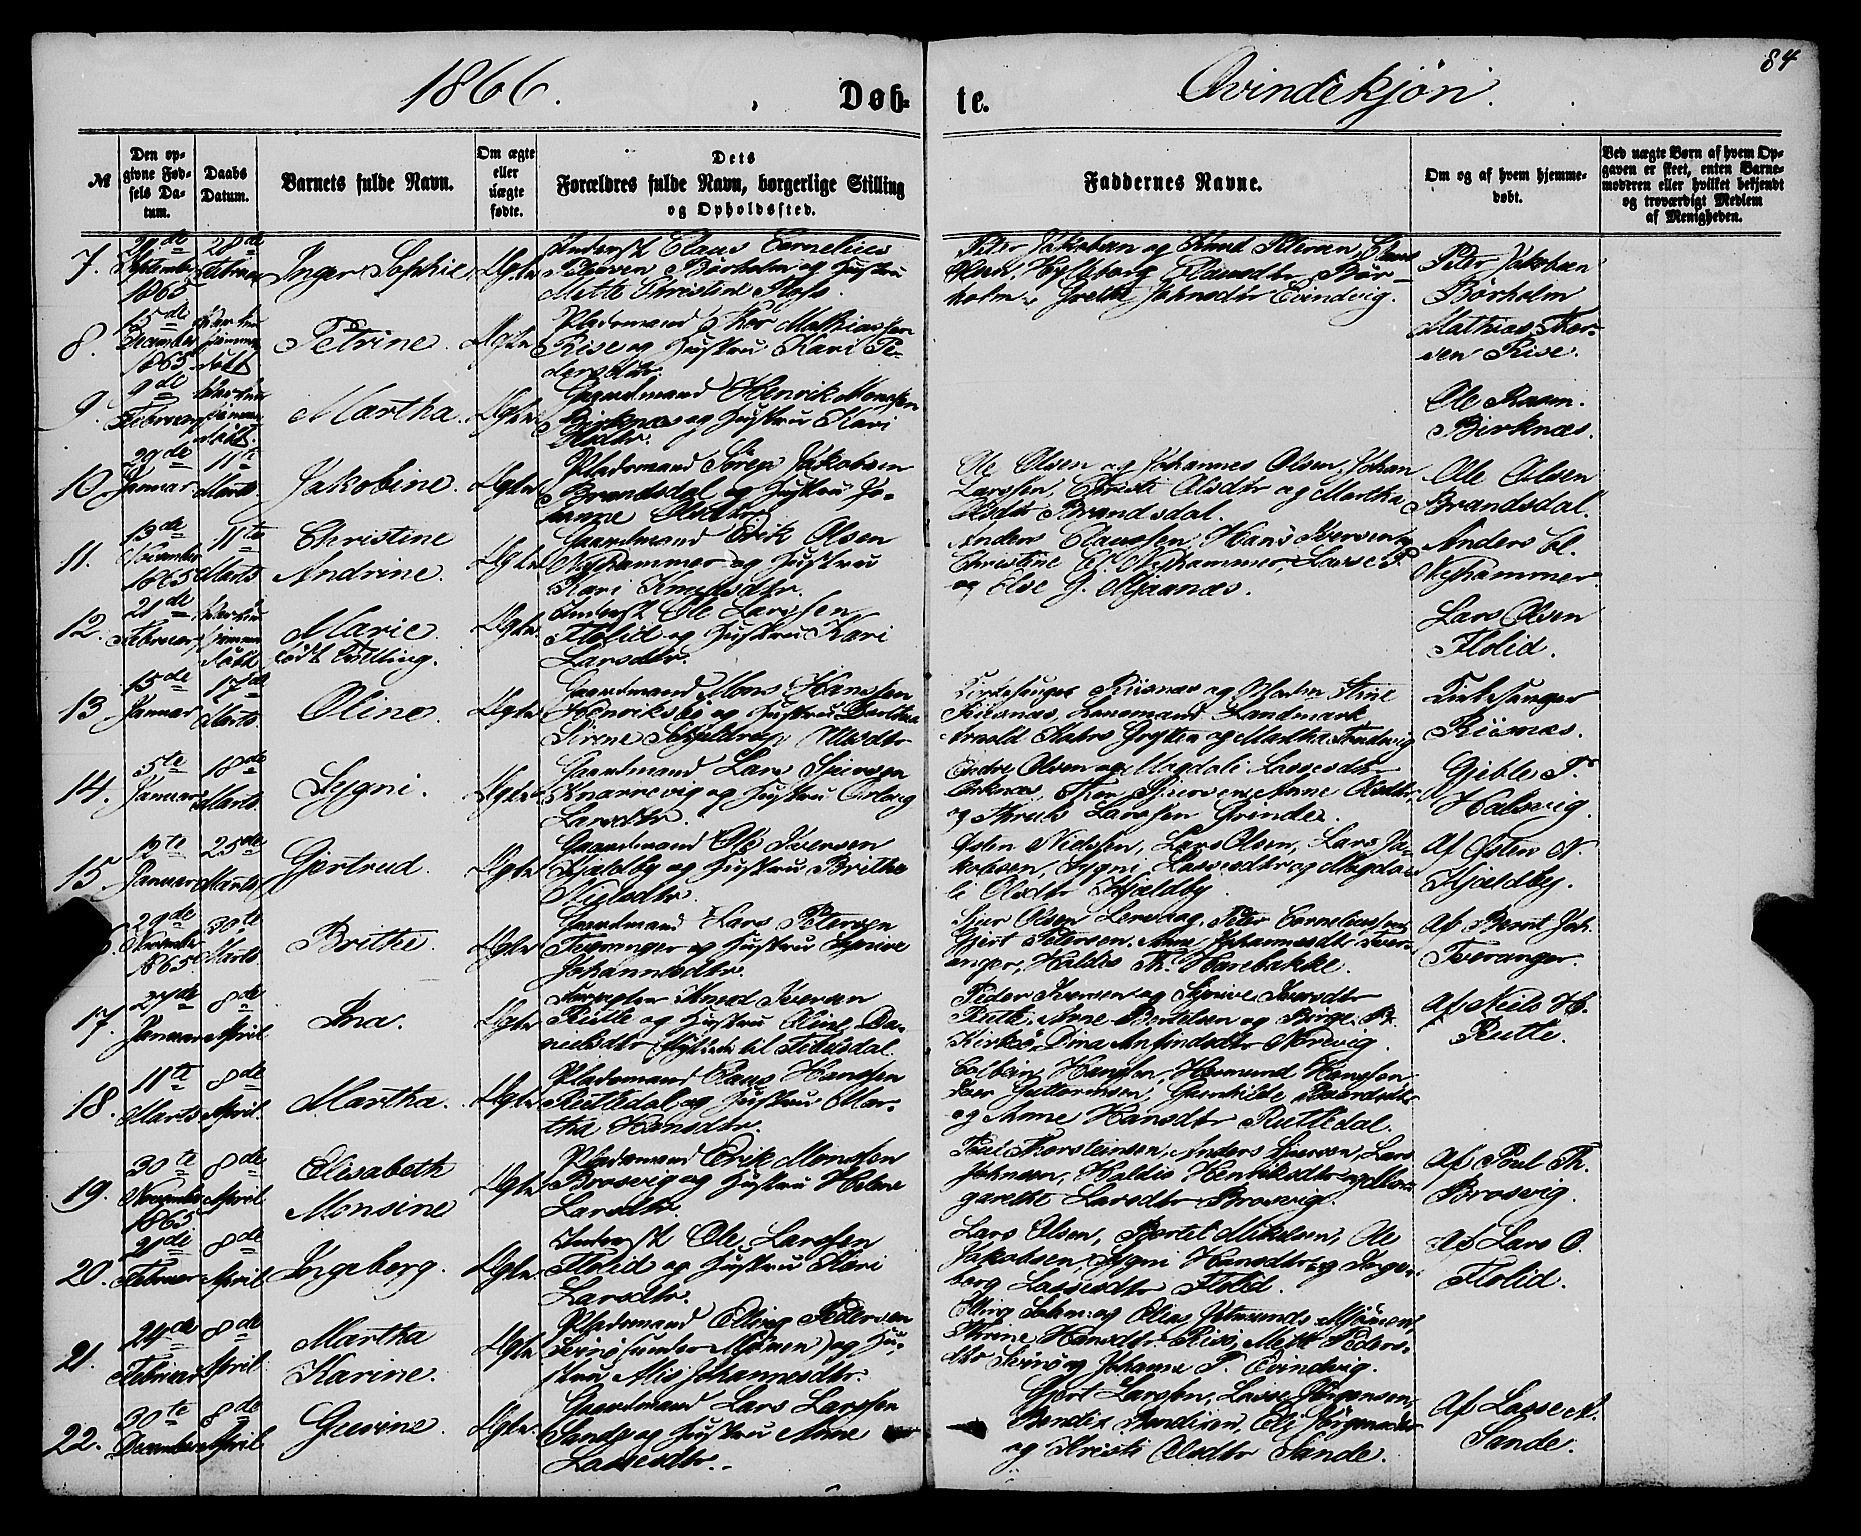 84
1866. Døb- te. Qvindekjøn.
№
Den op-
givne Fød-
sels Da-
tum.
Daabs
Datum.
Barnets fulde Navn.
Om ægte
eller
uægte
fødte.
Dets
Forældres fulde Navn, borgerlige Stilling
og Opholdssted.
Faddernes Navne.
Om og af hvem hjemme-
døbt.
Ved uægte Børn af hvem Op-
gaven er skeet, enten Barne-
moderen eller hvilket bekjendt
og troværdigt Medlem
af Menigheden.
7.
September
1865
28de
Februar
Inger Sophie
Ægte
Inderst Claus Cornelius
Petersen Børholm og Hustru
Mette Christine
Peter Jakobsen og Knud Petersen,
Olsen, Hylleborg Clausdtr Bør-
holm, Grethe Johnsdtr Evindvig.
Peter Jakobsen
Børholm
8.
15de
December
1865
Petrine.
Ægte
Pladsmand Thor Mathiassen
Rise og Hustru Kari Pe-
dersdtr.
Mathias Thor-
sen Rise.
9.
9de
Februar
Martha.
Ægte
Gaardmand Henrik Monssen
Birknæs og Hustru Kari
Olsdtr.
Ole Rasm.
Birknæs.
10.
Januar
11te
Marts
Jakobine.
Ægte
Pladsmand Søren Jakobsen
Brandsdal og Hustru Jo-
hanne Olsdtr
Ole Olsen og Johannes Olsen, Johan
Larssen, Christi Olsdtr og Martha
Olsdtr Brandsdal.
Ole Olsen
Brandsdal.
11.
13de
December
1865
11te
Marts
Christine
Andrine.
Ægte
Gaardmand Erik Olsen
Nyhammer og Hustru
Kari Knudsdtr.
Anders Claussen, Hans Iversen,
Christine El. Nyhammer, Lasse P.
og Else G. Mjaanæs.
Anders Cl.
Nyhammer
12.
21de
Februar
Marie.
født Tvilling.
Ægte
Inderst Ole Larssen
Flolid og Hustru Kari
Larsdtr.
Lars Olsen
Flolid.
13
15de
Januar
17de
Marts
Oline.
Ægte
Gaardmand Mons Hanssen
Henriksbø og Hustru Berthea
Sirene Schjelderup
Kirkesanger Riisnæs og Madm Stine
Riisnæs, Lensmand Landmark,
Grytten og Martha
Kirkesanger
Riisnæs.
14.
5te
Januar
18de
Marts
Sygni.
Ægte
Gaardmand Lars Sjursen
Knarrevig og Hustru
Larsdtr.
Endre Olsen og Magdali Lassesdtr
Birknæs, Thor Sjursen, Anne Olsdtr,
og Larssen Grinde.
Gjeble P.
Halsvig.
15
Januar
25de
Marts
Gjertrud.
Ægte
Gaardmand Ole Iversen
Kjeldby og Hustru Brithe
Nielsdtr.
Østen Nielssen, Lars Olsen, Lars Ja-
kobsen, Sygni Lassesdtr og Magda-
li Olsdtr Kjeldby.
Af Østen N.
Kjeldby.
6.
29de
November
1865.
30te
Marts
Brithe.
Ægte
Gaardmand Lars Petersen
Tveranger og Hustru Synive
Johannesdtr.
Sjur Olsen Lervaag, Peter Corneliussen,
Gjert Petersen, Anne Johannesdtr Tver-
anger, Haldis Th. Harebakke.
Af Bernt Joh.
Tveranger.
17.
27de
Januar
8de
April
Ina.
Ægte
Knud Iversen
Rutle og Hustru Oline Da-
nielsdtr til
Peder Iversen og Synive Iversdtr
Rutle, Anne Bertelsen og Børge B.
Kirkø, Dina Amfindsdtr Norevig.
Af Neils H.
Rutle.
18.
11te
Marts
8de
April
Martha.
Ægte
Pladsmand Claus Hanssen
Rutledal og Hustru Mar-
tha Hansdtr.
Colbein Hanssen, Hermund Hanssen,
Iver Guttormsen, Gunhilde Baardsdtr
og Anne Hansdtr Rutledal.
19.
30te
November
1865
8de
April
Elisabeth
Monsine
Ægte
Pladsmand Erik Monssen
Brosvig og Hustru Helene
Larsdtr.
Poul Thorsteinsen, Anders Sjursen, Lars
Johnsen, Haldis Henriksdtr og Mar-
garethe Larsdtr Brosvig.
Af Poul Th.
Brosvig.
20.
21de
Februar
8de
April
Ingeborg.
Ægte
Inderst Ole Larssen
Flolid og Hustru Kari
Larsdtr.
Lars Olsen, Bertel Mikelsen, Ole
Jakobsen, Sygni Hansdtr og Inge-
borg Lassesdtr Flolid.
Af Lars O.
Flolid.
21.
24de
Februar
8de
April
Martha
Karine.
Ægte
Pladsmand Elling Petersen
(under Mømen) og Hu-
stru Alis Johannesdtr.
Elling Salom: og Elias Mømen,
Thrine Hansdtr Risø, Mette Peders-
dtr og Johanne P. Evindvig.
22.
30te
December
8de
April
Gurine.
Ægte
Gaardmand Lars Larssen
Sande og Hustru Anne
Lassesdtr.
Gjert Larssen, Lasse Jørgensen,
Bendix Bendixen, Eli Jørgensdtr
og Kristi Olsdtr Sande.
Af Lasse A.
Sande.